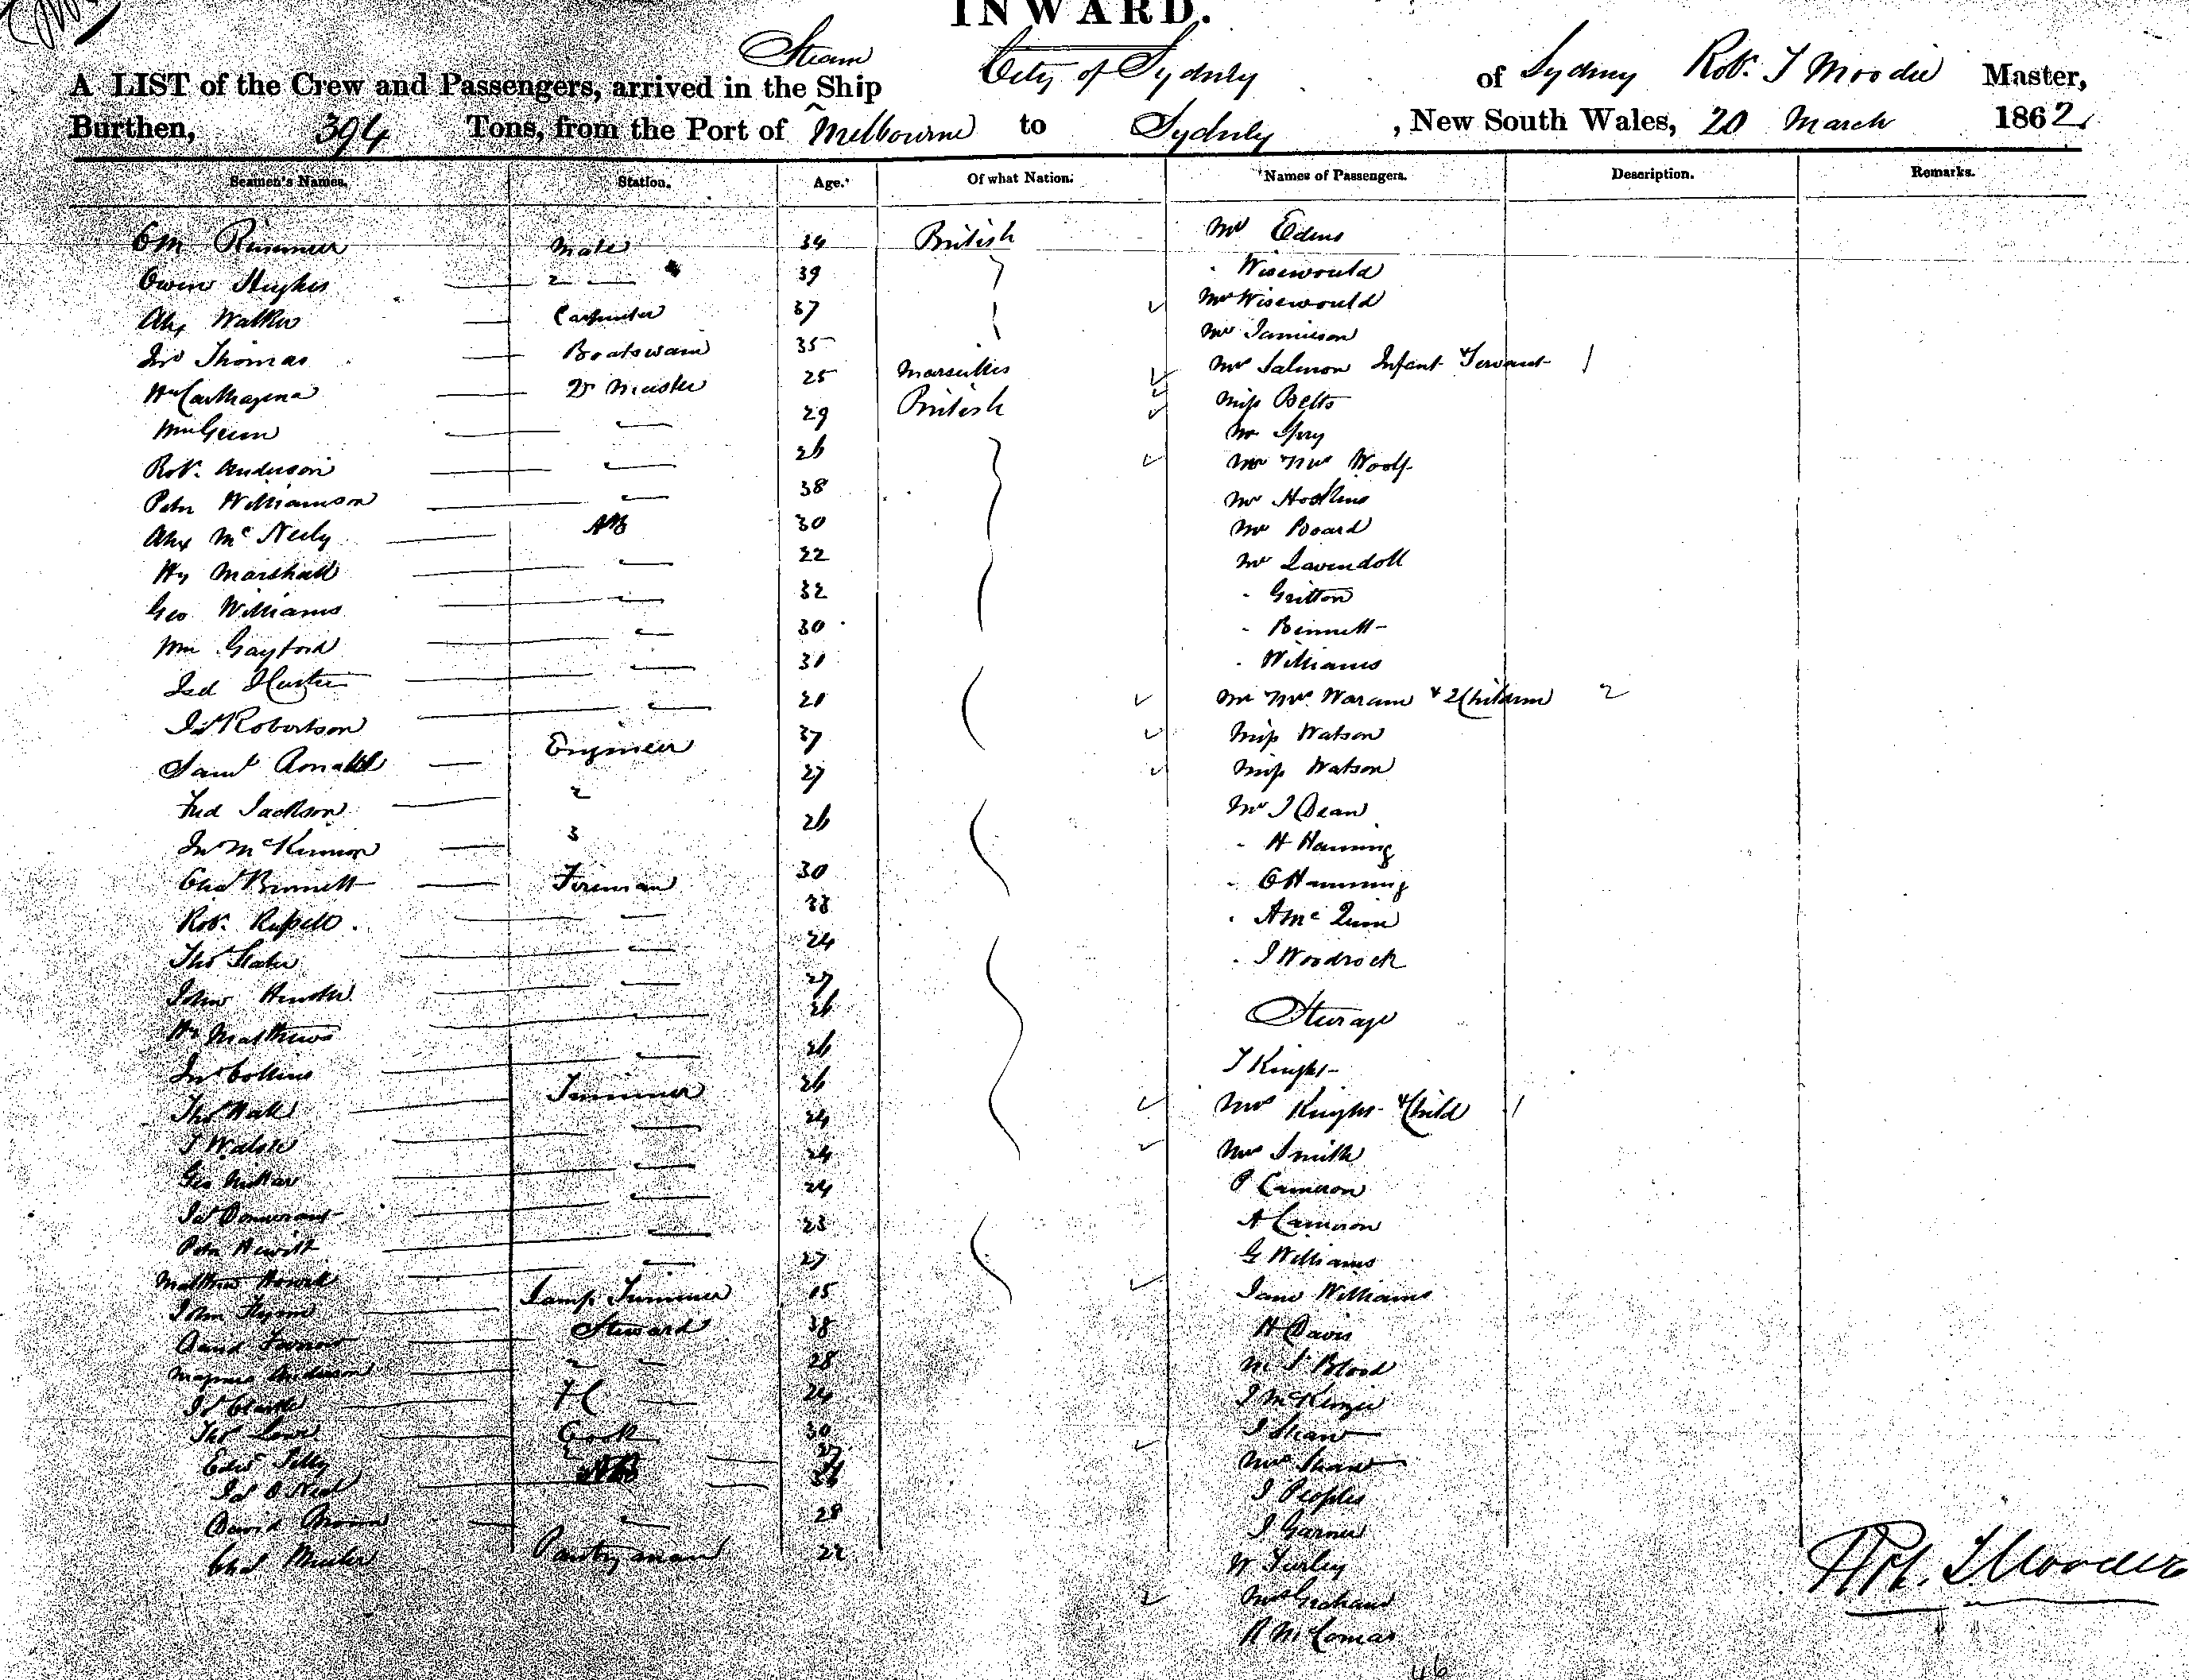 INWARD.
Steam
A LIST of the Crew and Passengers, arrived in the Ship City of Sydney of Sydney Robt. T Moodie Master,
Burthen, 394 Tons, from the Port of Melbourne to Sydney, New South Wales, 20 March 1862
Seamen's Names. Station. Age. Of what Nation. Names of Passengers. Description. Remarks.
Rimmer Mate 34 British Mr Edens
Owen Hughes 2 — 39 Wisewould
Alex Walker Carpenter 37 Mrs Wisewould
Jno Thomas Boatswain 35 Mr Jamieson
Wm Carthagena 25 Marseilles Mrs Salmon Infant & Servant 1
Wm Geun — 29 British Miss Betts
Robt. Anderson — 26 Mr Spry
Peter Williamson — 38 Mr & Mrs Woolf
Alex Mc Neily AB 30 Mr Hoskins
Hy Marshall — 22 Mr Board
Geo Williams — 32 Mr Lavendoll
Wm Gayford — 30 Gritton
— 31 Bennett
Jas Robertson — 20 Williams
Saml Ronald Engineer 37 Mr & Mrs Waram & 2 Children 2
Fred Jackson 2 27 Miss Watson
Jno McKinnon 3 26 Miss Watson
Chas Bennett Fireman 30 Mr J Dean
Robt. Russell — 33 H Hanning
Thos Slater — 24
John — 27 A Mc
Hy Matthews — 26 J Woodrock
Jno Collins — 26 Steerage
Thos Hall Trimmer 26 T Knight
J Walsh — 24 Mrs Knight & Child 1
Geo Millar — 24 Mrs Smith
Jas — 24 P Cameron
Peter Hewitt — 23 A Cameron
Matthew Howell — 27 G Williams
John Lamp Trimmer 15 Jane Williams
David Steward 38 H Davis
Magnus Anderson 2 — 28 Blood
Jas Clarke FC — 24 J McKenzie
Thos Lowe Cook 30 J Shaw
Edwd Tilly 2 Mrs Shaw
Jas O Neil AB J Peoples
David — 28 J Garner
Chas Pantryman 22 W Turley
Mrs Graham
R McComas
46
Robt. T Moodie